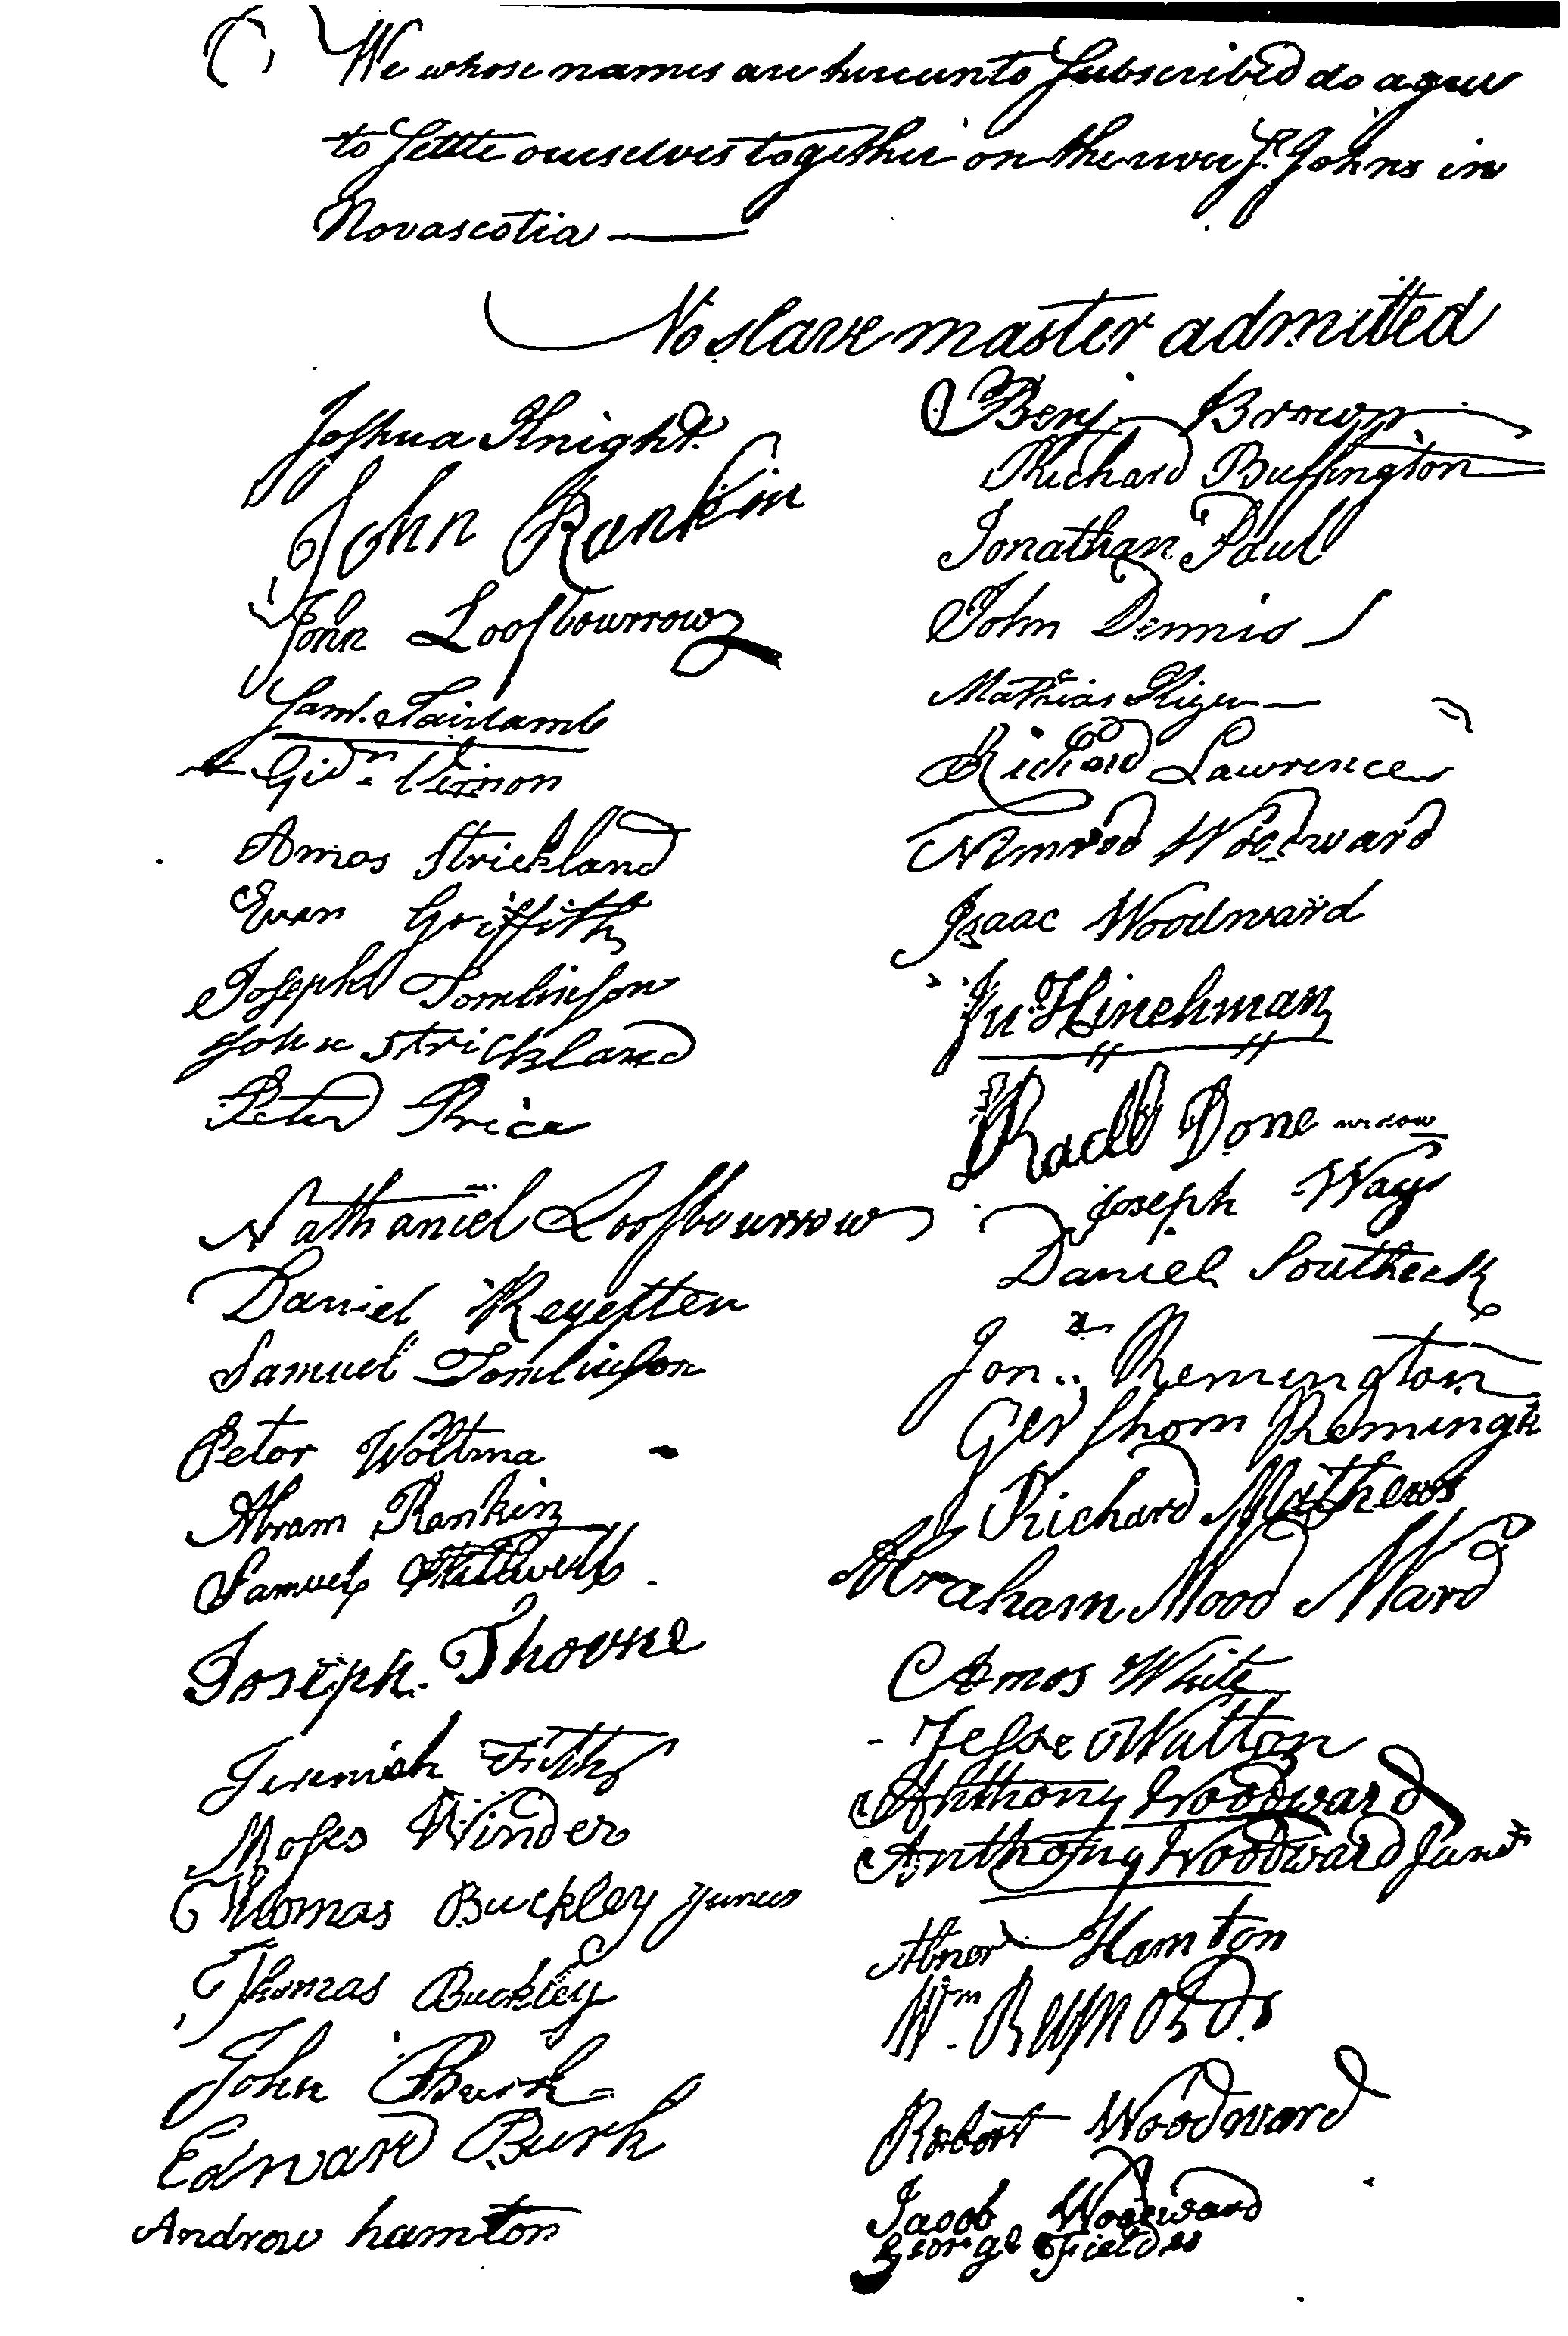 We whose names are hereunto Subscribed do agree
to Settle ourselves together on the river St. Johns in
Novascotia
No slave master admitted
Joshua Knight
John Rankin
John Loofbourrow
Saml. Fairlamb
Gidn. Vernon
Amos Strickland
Evan Griffith
Joseph Tomlinson
John Strickland
Peter Price
Nathaniel Loofbourrow
Daniel Regester
Samuel Tomlinson
Petor Woltma
Abram Rankin
Samuel Stillwell
Joseph Thorne
Jeremiah Fitth
Moses Winder
Thomas Buckley Juner
Thomas Buckley
John Burk
Edward Burk
Androw hamton
Benj Brown
Richard Buffington
Jonathan Paul
John Dennis
Mathias Kizer
Richard Lawrence
Nimrod Woodward
Isaac Woodward
Jn Hinchman
Rachl Done widow
Joseph Ways
Daniel Southeck
Jonn Remington
Gershom Remingt
Richard Mathews
Abraham Wood Ward
Amos White
Jesse Walton
Anthony Woodward
Anthony Woodward Junr
Abner Hamton
Wm. Reynolds
Robart Woodward
Jacob Woodward
George Fields